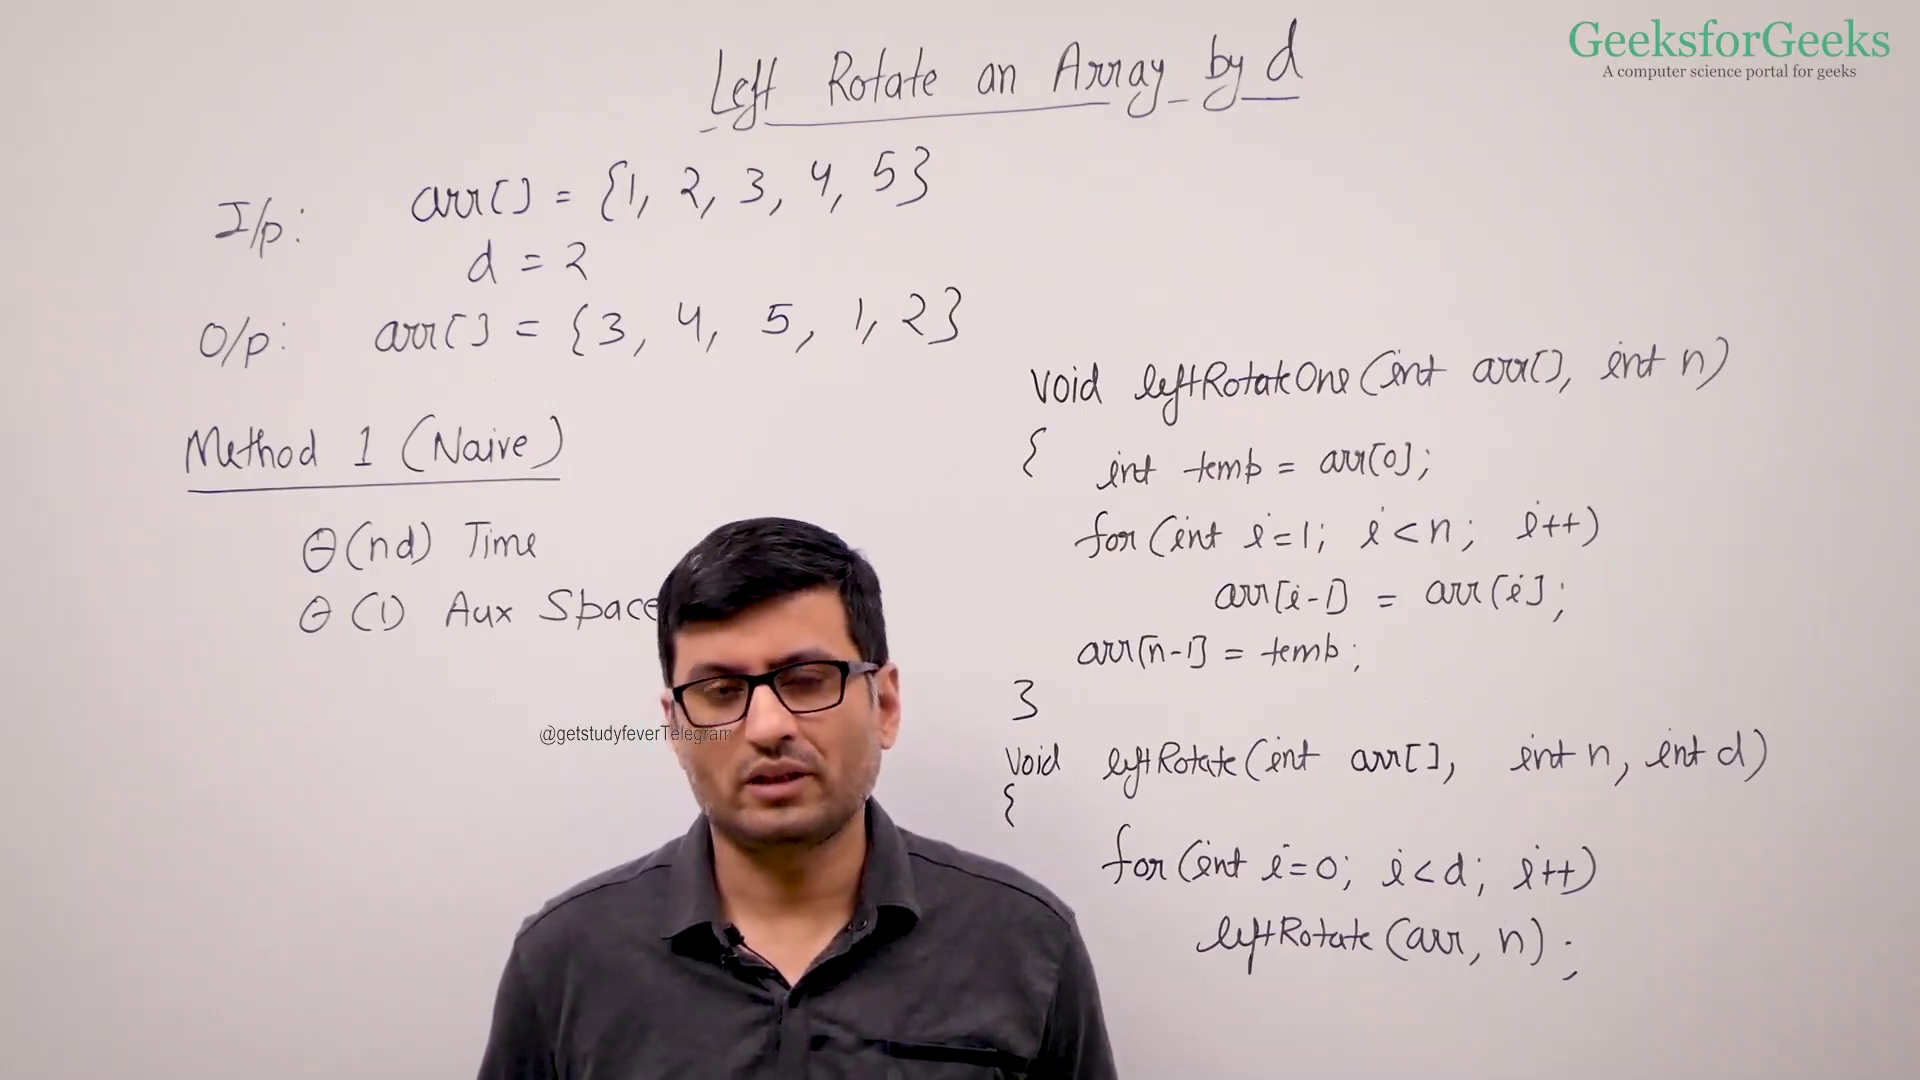 GeeksforGeeks
A computer science portal for geeks
Left Rotate an Array by d
I/p: arr[] = {1, 2, 3, 4, 5}
d = 2
O/p: arr[] = {3, 4, 5, 1, 2}
Method 1 (Naive)
Θ(nd) Time
Θ(1) Aux Space
@getstudyfeverTelegram
void leftRotateOne(int arr[], int n)
{ int temp = arr[0];
for(int i=1; i<n; i++)
arr[i-1] = arr[i];
arr[n-1] = temp;
}
void leftRotate(int arr[], int n, int d)
{
for(int i=0; i<d; i++)
leftRotate(arr, n);